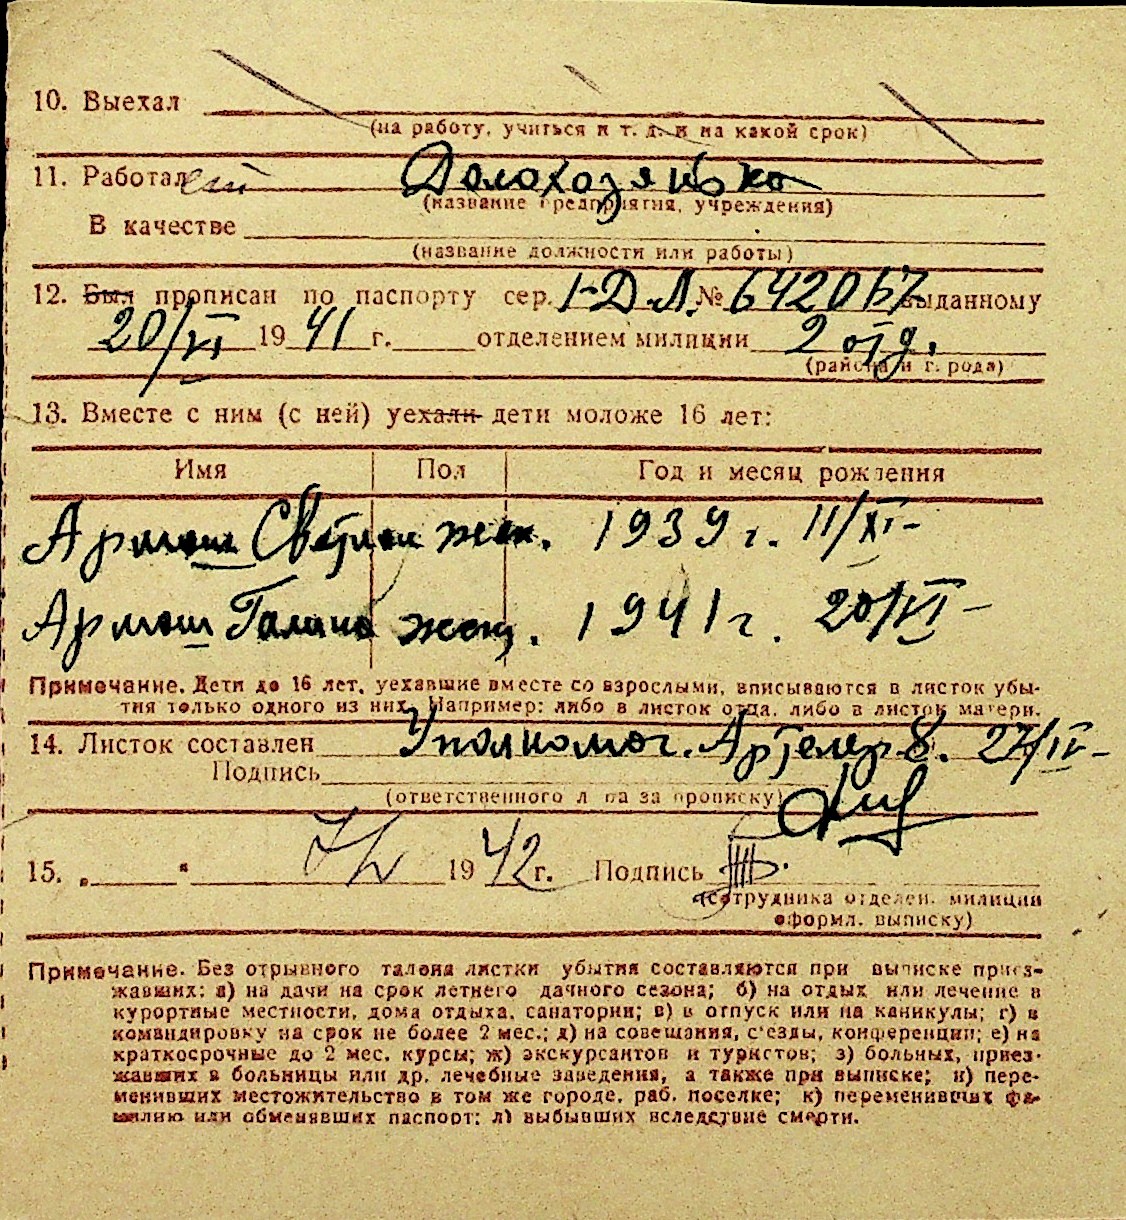 10. Выехал
(на работу, учиться и т. д. и на какой срок)
11. Работает Домохозяйка
(название предприятия, учреждения)
В качестве
(название должности или работы)
12. Был прописан по паспорту сер. I-Д.Л. № 642067 выданному
20/VI 1941 г. отделением милиции 2 отд.
(района и города)
13. Вместе с ним (с ней) уехали дети моложе 16 лет:
Имя Пол Год и месяц рождения
Армаш Светлан жен. 1939 г. 11/XI-
Армаш Галина женщ. 1941 г. 20/VI-
Примечание. Дети до 16 лет, уехавшие вместе со взрослыми, вписываются в листок убы-
тия только одного из них. Например: либо в листок отца, либо в листок матери.
14. Листок составлен Уполномог. 27/IV-
Подпись
(ответственного лица за прописку)
15. „ " 1942 г. Подпись
(сотрудника отделен. милиции
оформл. выписку)
Примечание. Без отрывного талона листки убытия составляются при выписке приез-
жавших: а) на дачи на срок летнего дачного сезона; б) на отдых или лечение в
курортные местности, дома отдыха, санатории; в) в отпуск или на каникулы; г) в
командировку на срок не более 2 мес.; д) на совещания, с'езды, конференции; е) на
краткосрочные до 2 мес. курсы; ж) экскурсантов и туристов; з) больных, приез-
жавших в больницы или др. лечебные заведения, а также при выписке; и) пере-
менивших местожительство в том же городе, раб. поселке; к) переменивших фа-
милию или обменявших паспорт; л) выбывших вследствие смерти.